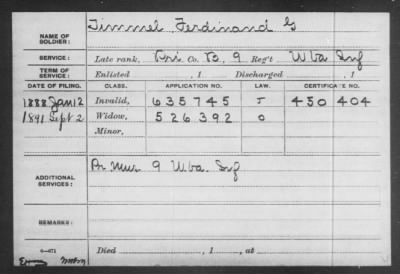 NAME OF SOLDIER: Timmel Ferdinand G
SERVICE: Late rank, Pri. Co. B, 9 Reg't W Va Inf
TERM OF SERVICE: Enlisted , 1 Discharged , 1
DATE OF FILING. CLASS. APPLICATION NO. LAW. CERTIFICATE NO.
1888 Jan 12 Invalid, 635745 J 450 404
1891 Sept 2 Widow, 526392 O
Minor,
ADDITIONAL SERVICES: Pr Mus 9 W Va. Inf
REMARKS:
6—071
Died , 1 , at